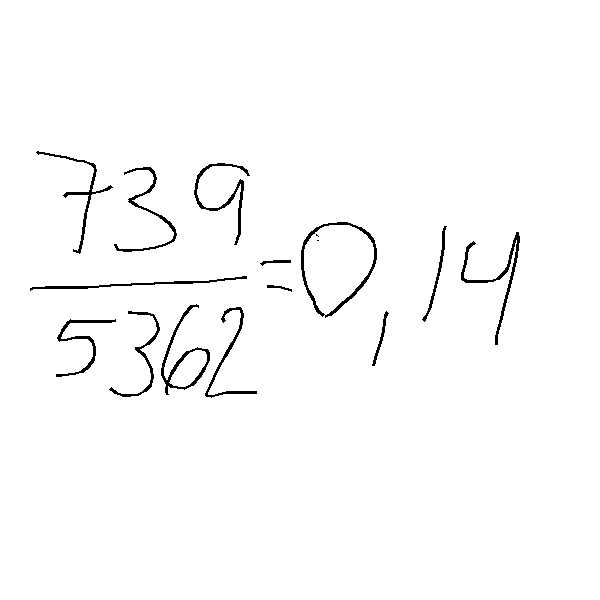 739
5362
=0,14